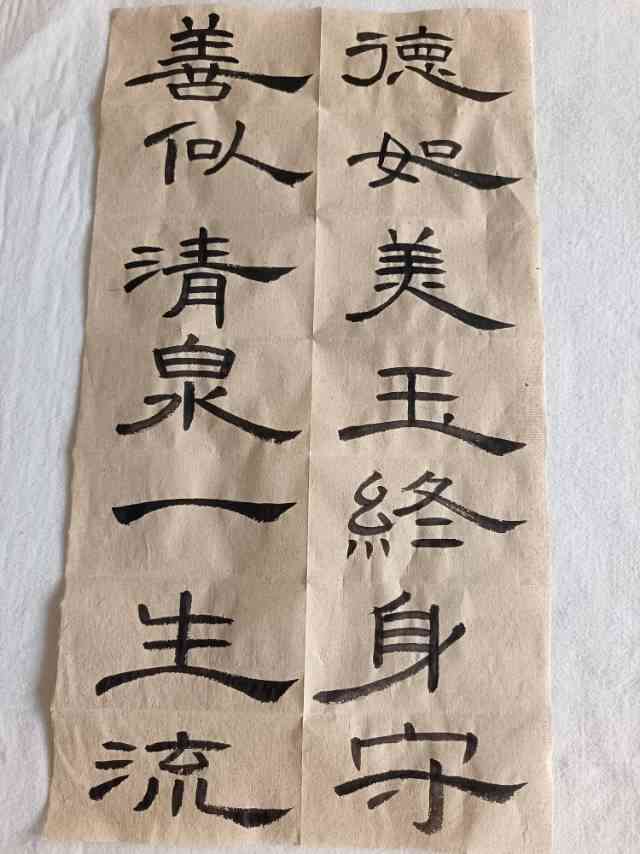 德如美玉終身守
善似清泉一生流